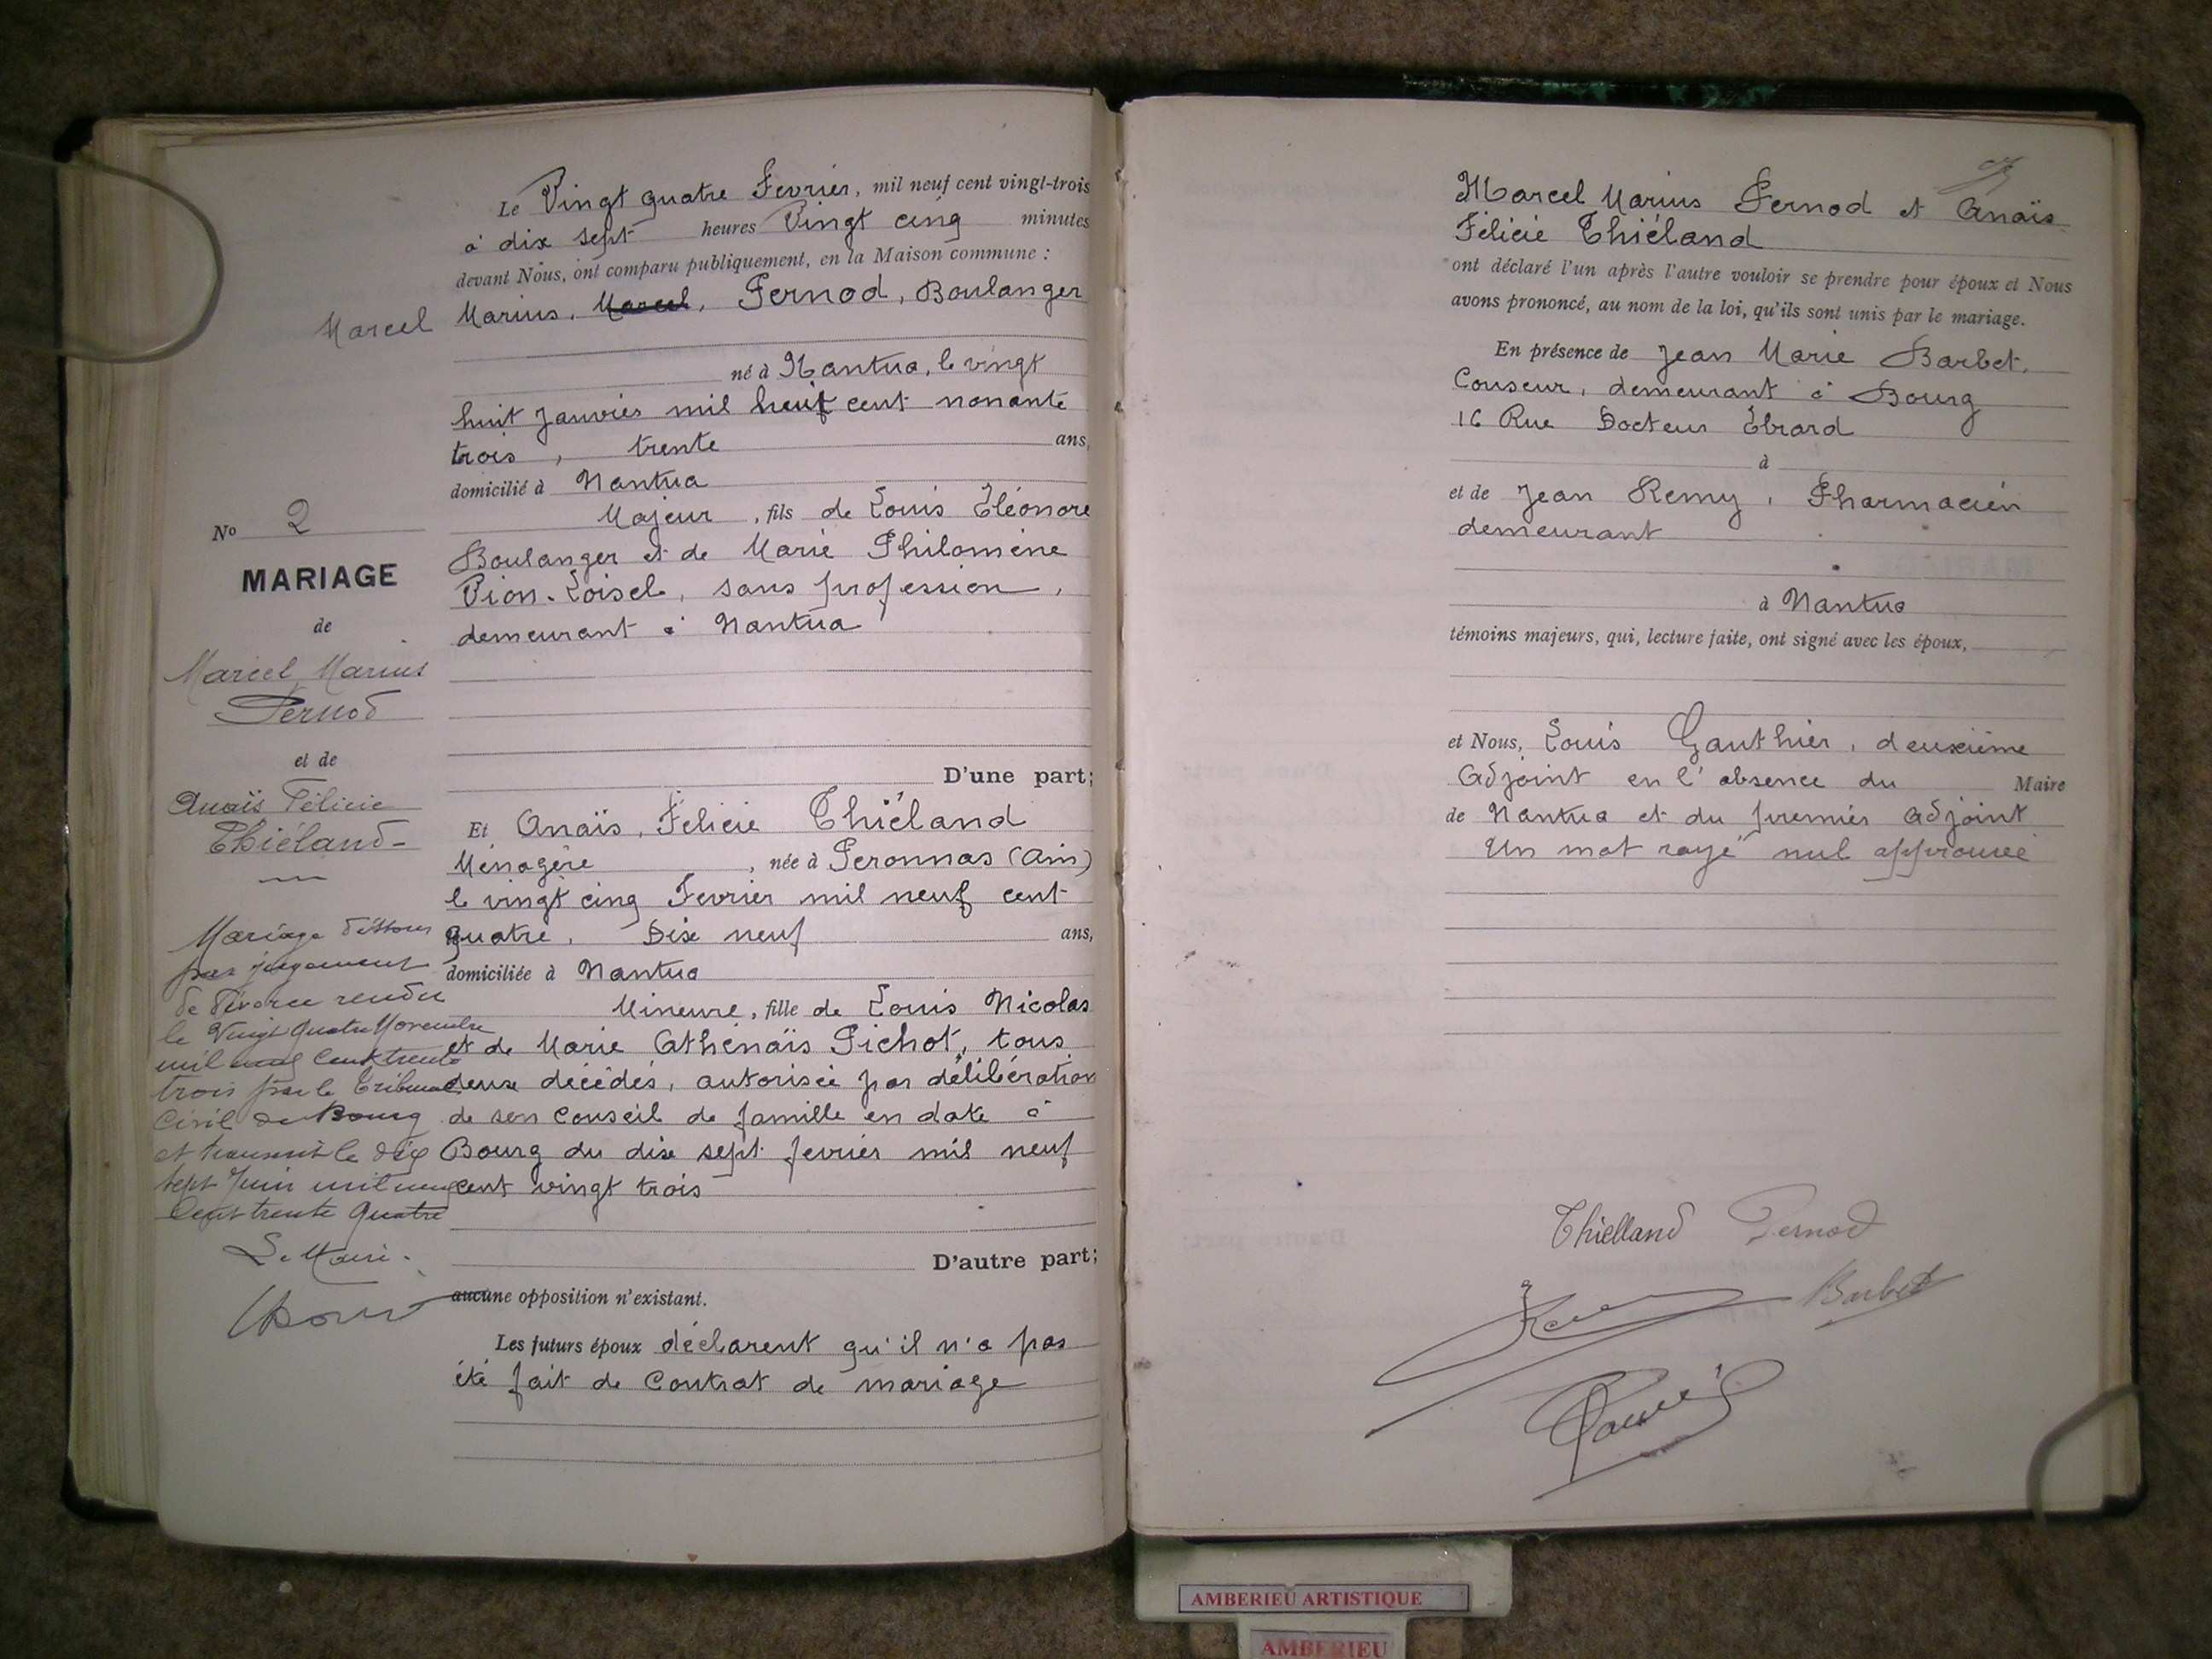 Le Vingt quatre Fevrier, mil neuf cent vingt-trois
à dix sept heures Vingt cinq minutes
devant Nous, ont comparu publiquement, en la Maison commune :
Marcel Marius, Marcel, Pernod, Boulanger
né à Nantua, le vingt
huit Janvier mil huit cent nonante
trois, trente ans,
domicilié à Nantua
Majeur, fils de Louis Eléonore
Boulanger et de Marie Philomène
Vion-Loisel, sans profession,
demeurant à Nantua
D'une part;
Et Anaïs, Félicie Thiéland
Ménagère, née à Peronnas (Ain)
le vingt cinq Fevrier mil neuf cent
quatre, Dix neuf ans,
domiciliée à Nantua
Mineure, fille de Louis Nicolas
et de Marie Athénaïs Pichot, tous
deux décédés, autorisée par délibération
de son Conseil de famille en date à
Bourg du dix sept fevrier mil neuf
cent vingt trois
D'autre part;
aucune opposition n'existant.
Les futurs époux déclarent qu'il n'a pas
été fait de Contrat de mariage
No 2
MARIAGE
de
Marcel, Marius
Pernod
et de
Anaïs Félicie
Thiéland
Mariage dissous
par jugement
de divorce rendu
le Vingt Quatre Novembre
mil neuf Cent trente
trois par le Tribunal
Civil de Bourg
et transcrit le dix
sept Juin mil neuf
Cent trente Quatre
Le Maire
Marcel Marius Pernod et Anaïs
Félicie Thiéland
ont déclaré l'un après l'autre vouloir se prendre pour époux et Nous
avons prononcé, au nom de la loi, qu'ils sont unis par le mariage.
En présence de Jean Marie Barbet,
Couseur, demeurant à Bourg
16 Rue Docteur Ebrard
à
et de Jean Remy, Pharmacien
demeurant
à Nantua
témoins majeurs, qui, lecture faite, ont signé avec les époux,
et Nous, Louis Gauthier, deuxième
Adjoint en l'absence du Maire
de Nantua et du premier adjoint
Un mot rayé nul approuvé
Thielland Pernod
Barbet
AMBERIEU ARTISTIQUE
AMBERIEU